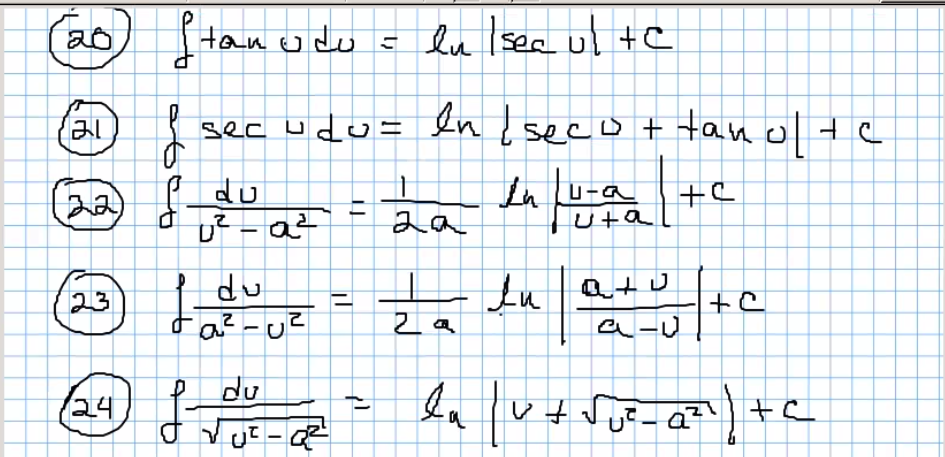 (20) ∫ tan u du = ln |sec u| + c
(21) ∫ sec u du = ln |sec u + tan u| + c
(22) ∫ du/(u² - a²) = 1/(2a) ln |(u-a)/(u+a)| + c
(23) ∫ du/(a² - u²) = 1/(2a) ln |(a+u)/(a-u)| + c
(24) ∫ du/√(u² - a²) = ln |u + √(u² - a²)| + c